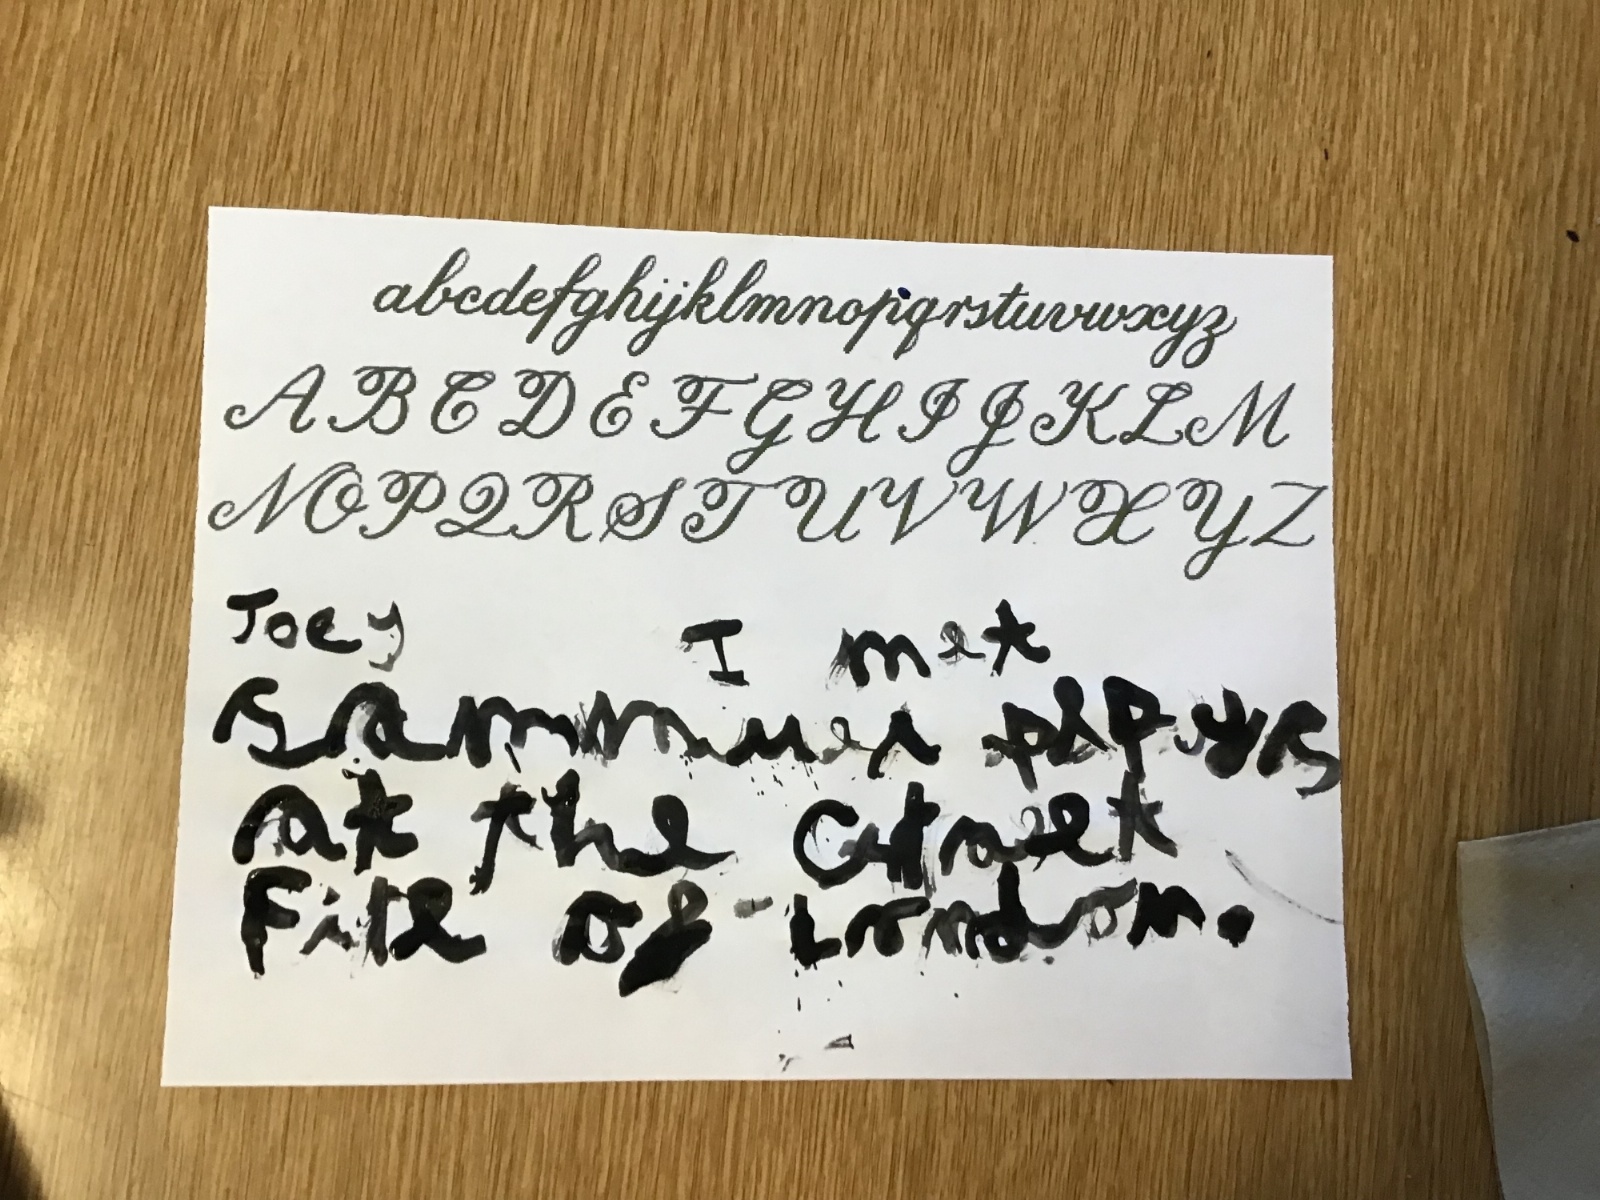 abcdefghijklmnopqrstuvwxyz
A B C D E F G H I J K L M
N O P Q R S T U V W X Y Z
Joey I met
at the Great
Fire of London.